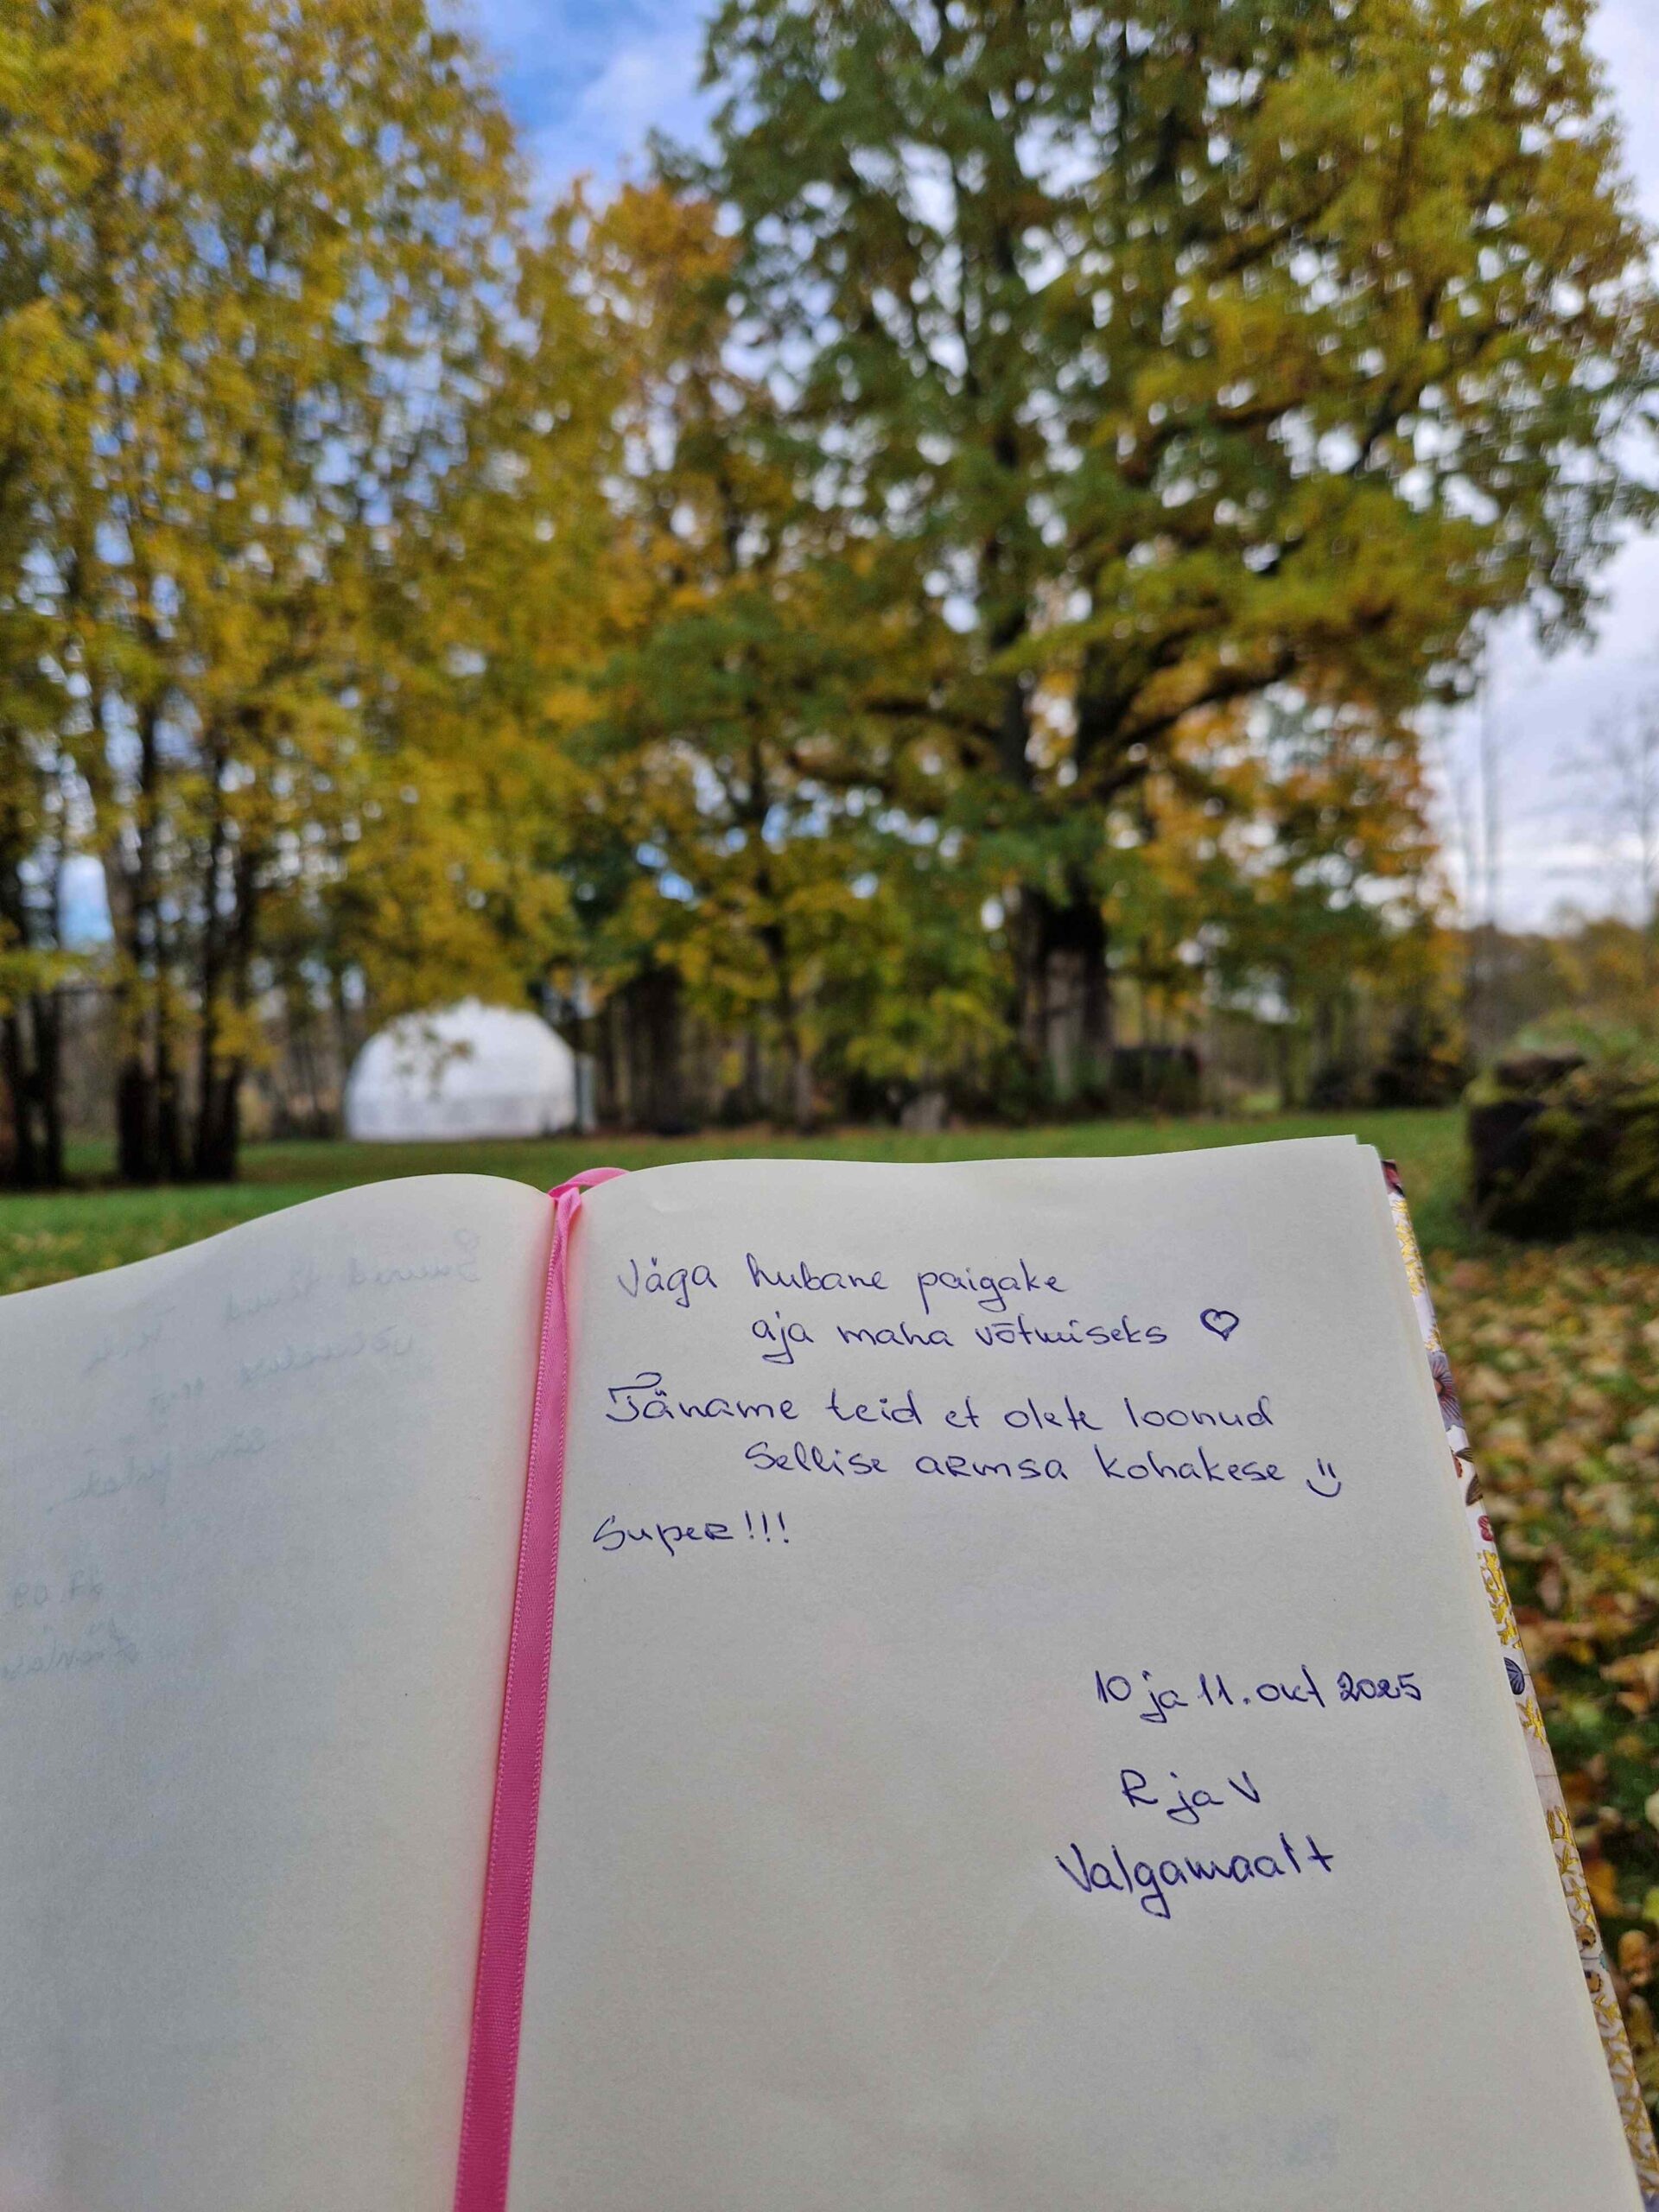 Väga hubane paigake
aja maha võtmiseks ♡
Täname teid et olete loonud
sellise armsa kohakese
Super!!!
10 ja 11. okt 2025
R ja V
Valgamaalt